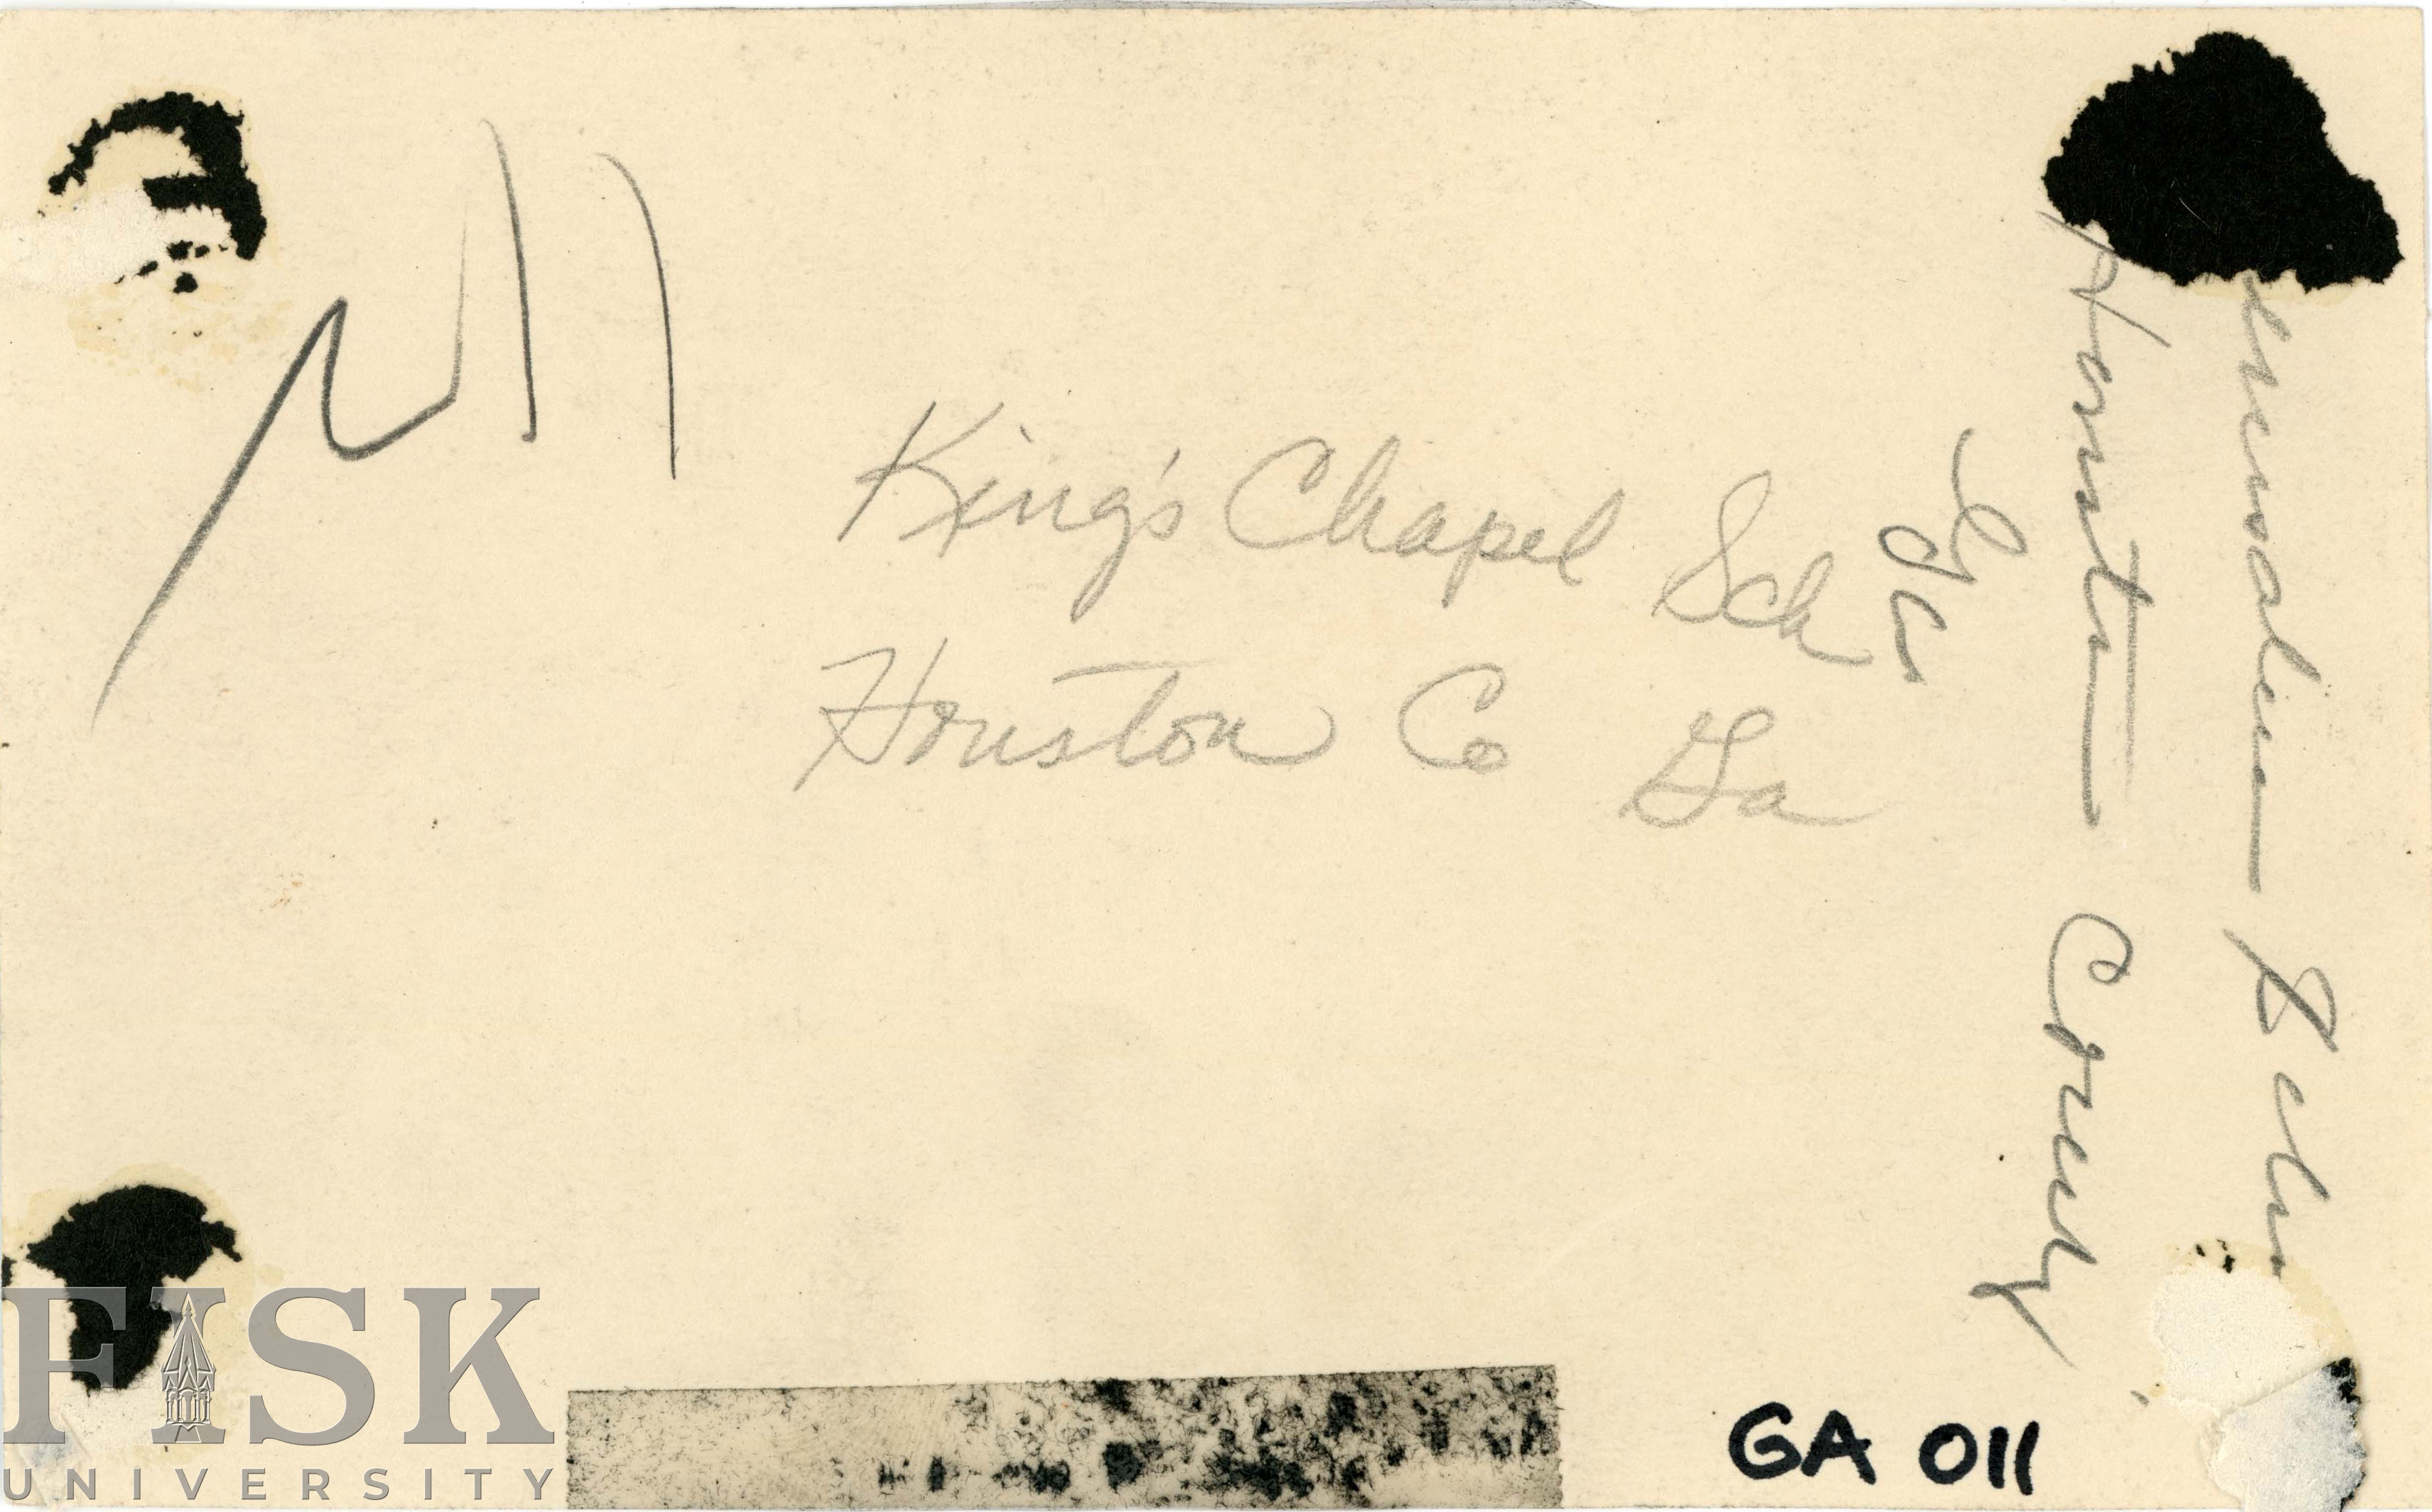 King's Chapel Sch
Houston Co Ga
Houston County
Ga
GA 011
FISK
UNIVERSITY